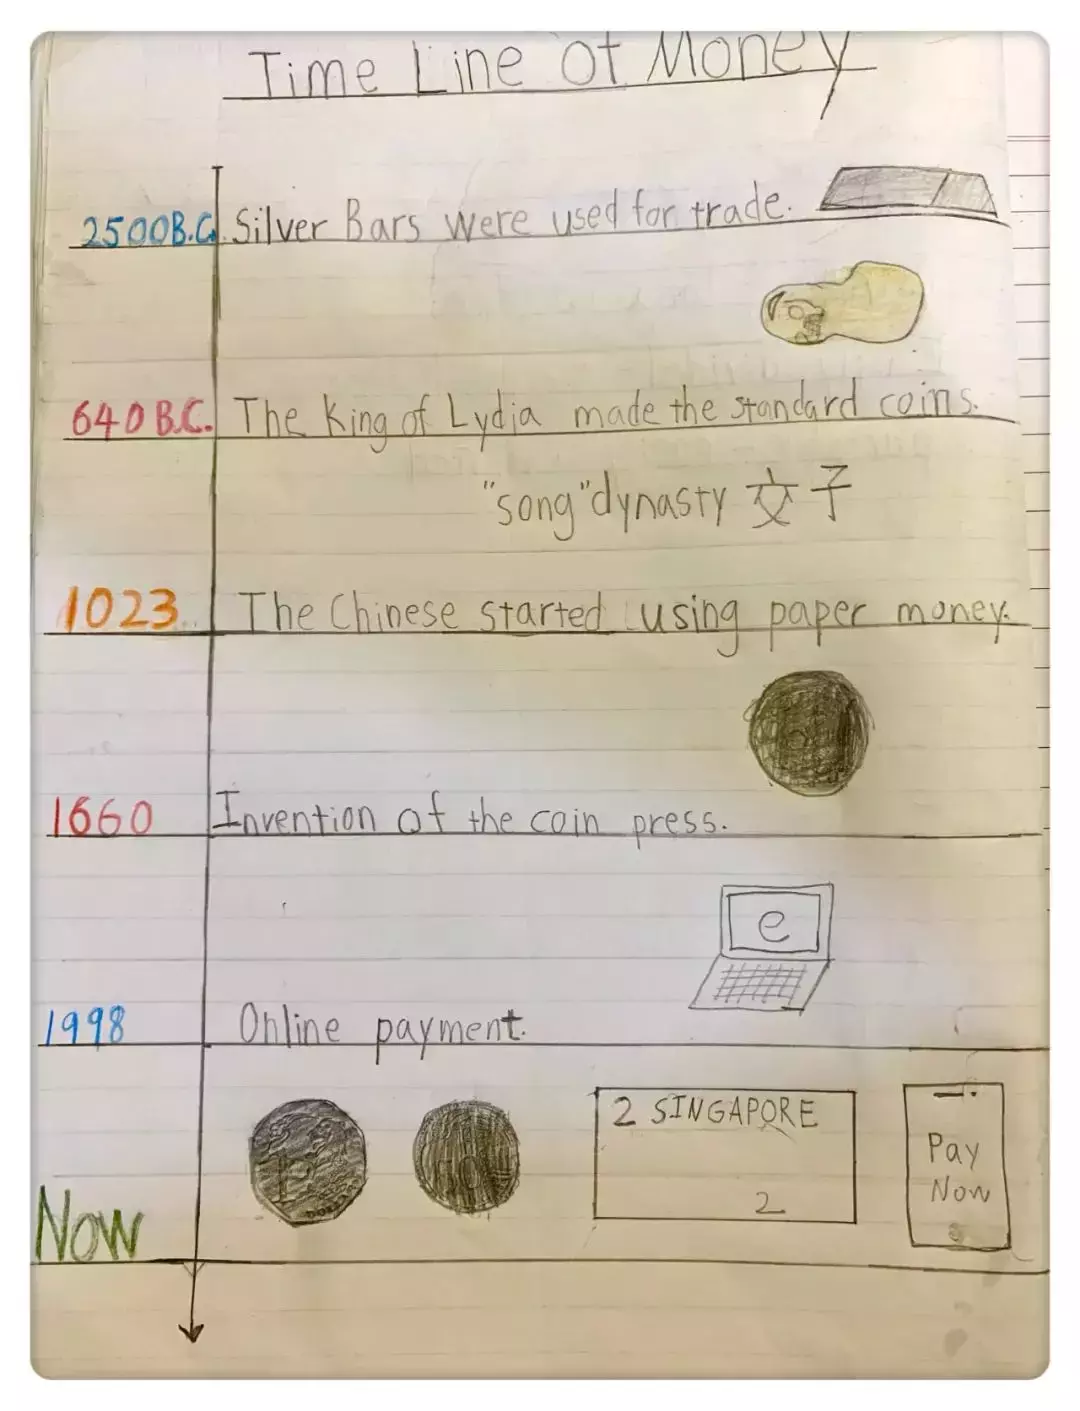 Time Line of Money
2500B.C. Silver Bars were used for trade.
640 B.C. The King of Lydia made the standard coins.
"song" dynasty 交子
1023 The Chinese started using paper money.
1660 Invention of the coin press.
e
1998 Online payment.
10
2 SINGAPORE
2
Pay
Now
Now